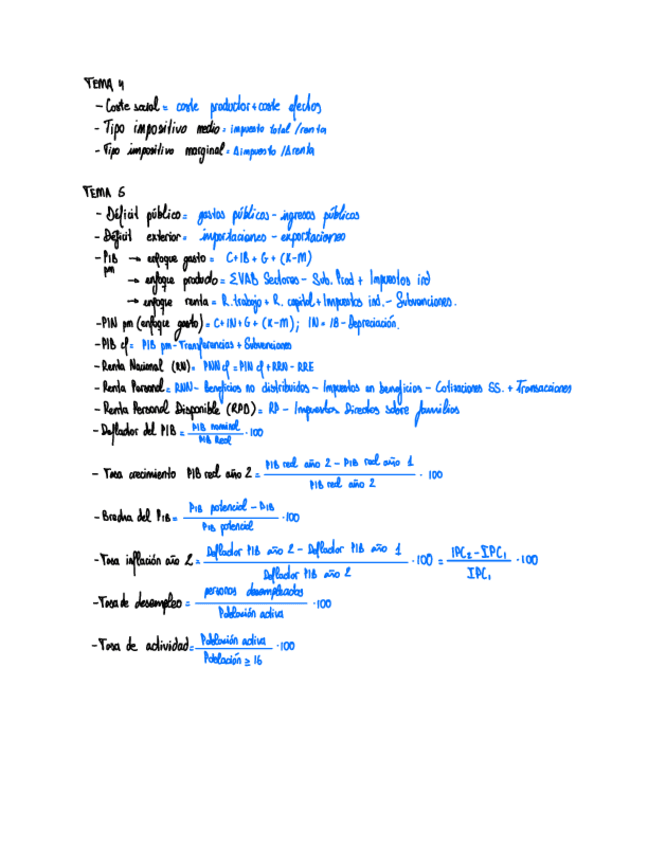 TEMA 4
- Coste social = coste productor + coste efectos
- Tipo impositivo medio = impuesto total / renta
- Tipo impositivo marginal = Δimpuesto / Δrenta
TEMA 5
- Déficit público = gastos públicos - ingresos públicos
- Déficit exterior = importaciones - exportaciones
- PIB pm → enfoque gasto = C + IB + G + (X-M)
→ enfoque producto = ΣVAB Sectores - Sub. Prod + Impuestos ind
→ enfoque renta = R. trabajo + R. capital + Impuestos ind. - Subvenciones.
- PIN pm (enfoque gasto) = C + IN + G + (X-M) ; IN = IB - Depreciación.
- PIB cf = PIB pm - Transferencias + Subvenciones
- Renta Nacional (RN) = PNN cf = PIN cf + RRN - RRE
- Renta Personal = RNN - Beneficios no distribuidos - Impuestos en beneficios - Cotizaciones SS. + Transacciones
- Renta Personal Disponible (RPD) = RP - Impuestos Directos sobre familias
- Deflador del PIB = PIB nominal / PIB Real · 100
- Tasa crecimiento PIB real año 2 = PIB real año 2 - PIB real año 1 / PIB real año 2 · 100
- Brecha del PIB = PIB potencial - PIB / PIB potencial · 100
- Tasa inflación año 2 = Deflador PIB año 2 - Deflador PIB año 1 / Deflador PIB año 2 · 100 = IPC₂ - IPC₁ / IPC₁ · 100
- Tasa de desempleo = personas desempleadas / Población activa · 100
- Tasa de actividad = Población activa / Población ≥ 16 · 100